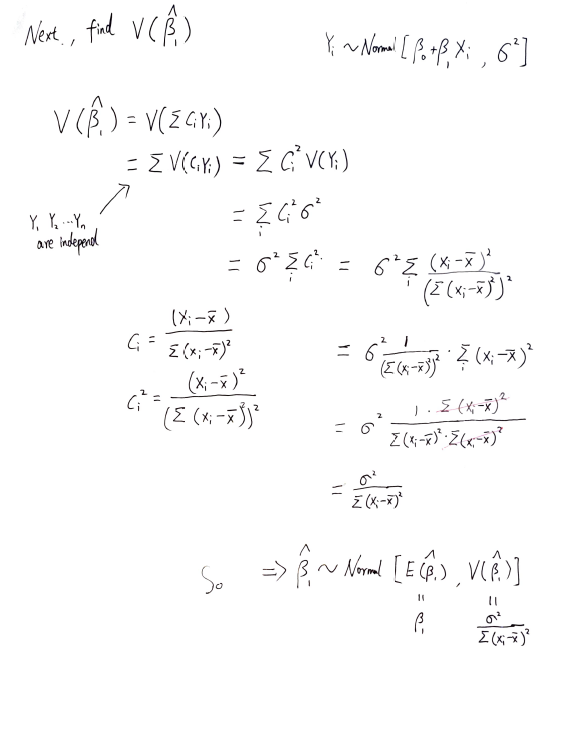 Next., find V(β̂₁)
Yᵢ ~ Normal [β₀+β₁Xᵢ , σ²]
V(β̂₁) = V(Σ CᵢYᵢ)
= Σ V(CᵢYᵢ) = Σ Cᵢ² V(Yᵢ)
Y₁ Y₂ ... Yₙ
are independ
= Σᵢ Cᵢ² σ²
= σ² Σᵢ Cᵢ² = σ² Σᵢ (xᵢ-x̄)² / (Σ(xᵢ-x̄)²)²
Cᵢ = (xᵢ-x̄) / Σ(xᵢ-x̄)²
= σ² 1/(Σ(xᵢ-x̄)²)² · Σᵢ (xᵢ-x̄)²
Cᵢ² = (xᵢ-x̄)² / (Σ(xᵢ-x̄)²)²
= σ² 1 · Σ(xᵢ-x̄)² / Σ(xᵢ-x̄)² · Σ(xᵢ-x̄)²
= σ² / Σ(xᵢ-x̄)²
So => β̂₁ ~ Normal [E(β̂₁) , V(β̂₁)]
= =
β₁ σ² / Σ(xᵢ-x̄)²